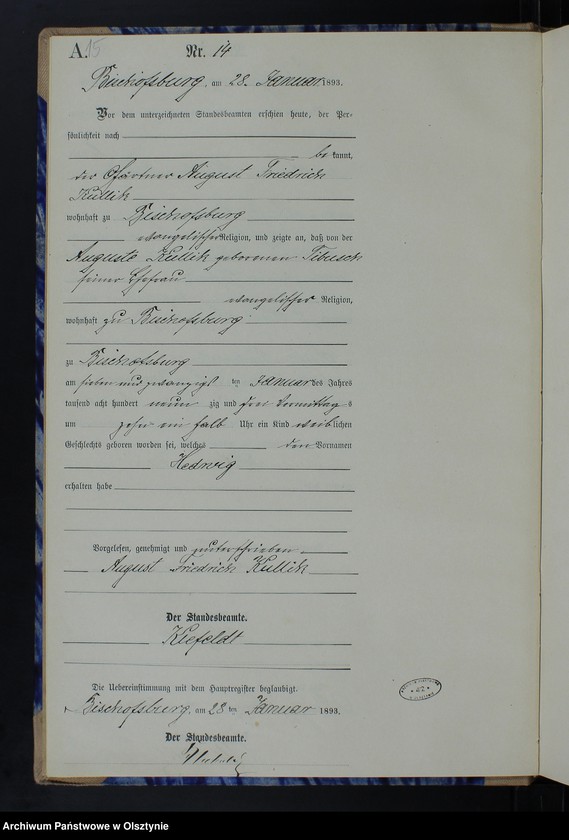 A. 15
Nr. 14
Bischofsburg, am 28. Januar 1893.
Vor dem unterzeichneten Standesbeamten erschien heute, der Per-
sönlichkeit nach
be kannt,
der Gärtner August Friedrich
Kullik
wohnhaft zu Bischofsburg
evangelischer Religion, und zeigte an, daß von der
Auguste Kullik geborenen
seiner Ehefrau
evangelischer Religion,
wohnhaft zu Bischofsburg
zu Bischofsburg
am sieben und zwanzigsten ten Januar des Jahres
tausend acht hundert neun zig und drei Vormittag s
um zehn ein halb Uhr ein Kind weiblichen
Geschlechts geboren worden sei, welches den Vornamen
Hedwig
erhalten habe
Vorgelesen, genehmigt und unterschrieben
August Friedrich Kullik
Der Standesbeamte.
Die Uebereinstimmung mit dem Hauptregister beglaubigt.
Bischofsburg, am 28 ten Januar 1893.
Der Standesbeamte.
Archiwum Państwowe w Olsztynie